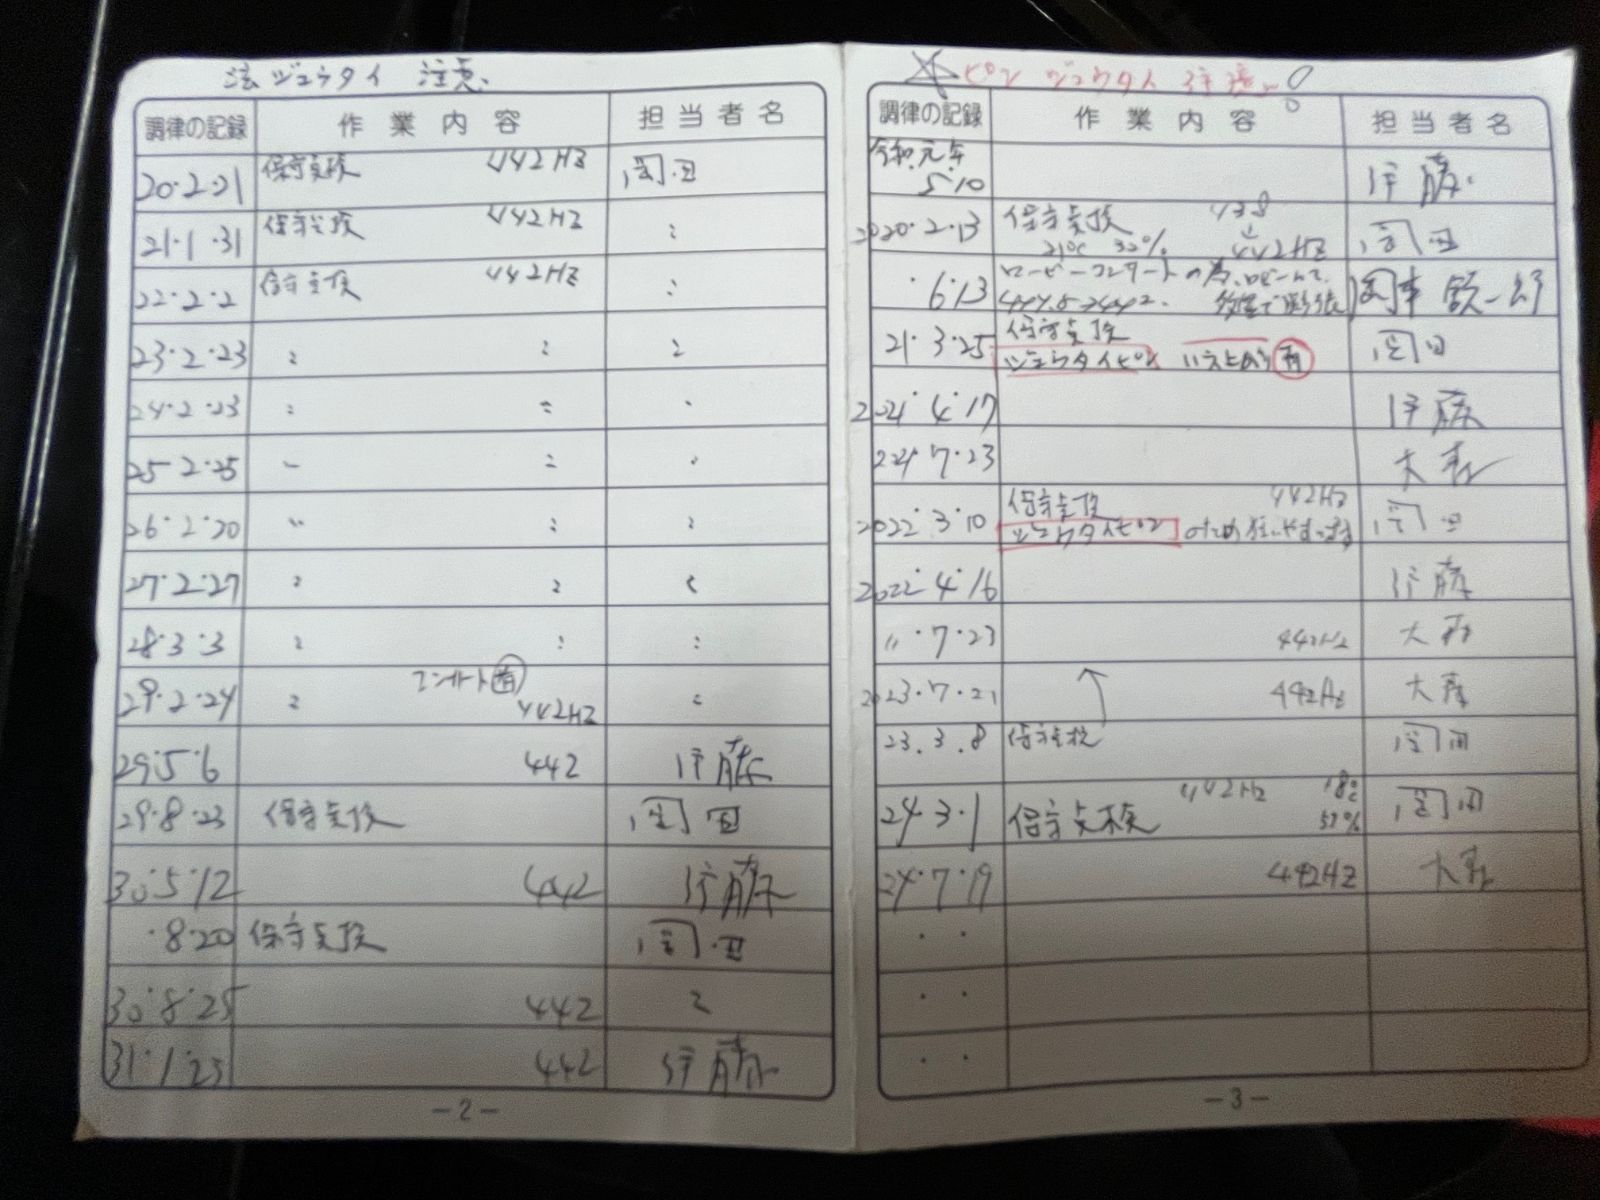 ジュウタイ 注意
調律の記録 作業内容 担当者名
20・2・21 保守点検 442HZ 岡田
21・1・31 保守点検 442HZ 〃
22・2・2 保守点検 442HZ 〃
23・2・23 〃 〃 〃
24・2・23 〃 〃 〃
25・2・25 〃 〃 〃
26・2・20 〃 〃 〃
27・2・27 〃 〃 〃
28・3・3 〃 〃 〃
29・2・24 〃 コンサート有 442HZ 〃
29・5・6 442 伊藤
29・8・23 保守点検 岡田
30・5・12 442 伊藤
・8・20 保守点検 岡田
30・8・25 442 〃
31・1・23 442 伊藤
-2-
ピン ジュウタイ 注意!
調律の記録 作業内容 担当者名
令和元年
5・10 伊藤
2020・2・13 保守点検 438 岡田
21℃ 32% ↓442HZ
・6・13 ロビーコンサートの為、ロビーにて
21・3・25 保守点検 岡田
ジュウタイピン 有
2021・4・17 伊藤
221・7・23 大森
2022・3・10 保守点検 442HZ 岡田
ジュウタイピン のため狂いやすい
2022・4・16 伊藤
〃・7・23 442HZ 大森
2023・7・21 442HZ 大森
23・3・8 保守点検 岡田
24・3・1 保守点検 442HZ 18℃ 岡田
24・7・19 442HZ 大森
-3-